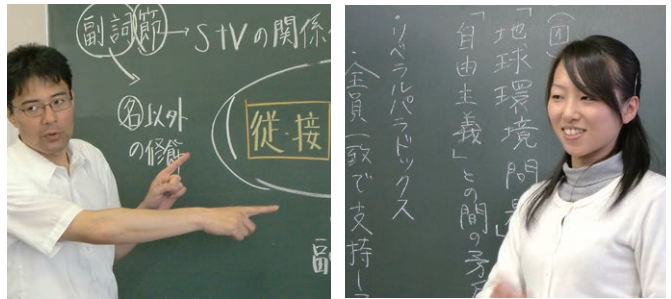 副詞節→S+Vの関係
名以外
の修飾
従・接
副
(四)
「地球環境問題」
「自由主義」との間の矛
・リベラルパラドックス
・全員一致で支持し